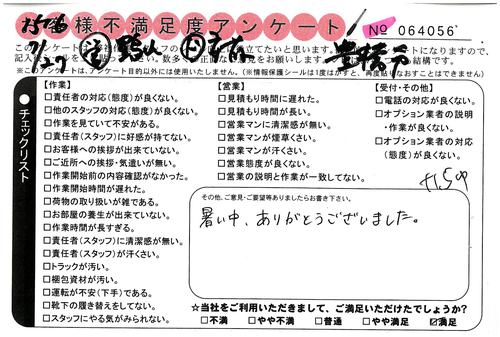 様不満足度アンケート
№ 064056
7/27
豊橋市
※このアンケートは、アンケート目的以外には使用いたしません。(※情報保護シールは1度はがすと、再度貼りなおすことはできません)
チェックリスト
【作業】
□責任者の対応(態度)が良くない。
□他のスタッフの対応(態度)が良くない。
□作業を見ていて不安がある。
□責任者(スタッフ)に好感が持てない。
□お客様への挨拶が出来ていない。
□ご近所への挨拶・気遣いが無い。
□作業開始前の内容確認がなかった。
□作業開始時間が遅れた。
□荷物の取り扱いが雑である。
□お部屋の養生が出来ていない。
□作業時間が長すぎる。
□責任者(スタッフ)に清潔感が無い。
□責任者(スタッフ)が汗くさい。
□トラックが汚い。
□梱包資材が汚い。
□運転が不安(下手)である。
□靴下の履き替えをしてない。
□スタッフにやる気がみられない。
【営業】
□見積もり時間に遅れた。
□見積もり時間が長い。
□営業マンに清潔感が無い。
□営業マンが煙草くさい。
□営業マンが汗くさい。
□営業態度が良くない。
□営業の説明と作業が一致してない。
【受付・その他】
□電話の対応が良くない。
□オプション業者の説明
・作業が良くない。
□オプション業者の対応
(態度)が良くない。
その他、ご意見・ご要望等ありましたらお書き下さい。
暑い中、ありがとうございました。
☆当社をご利用いただきまして、ご満足いただけたでしょうか?
□不満 □やや不満 □普通 □やや満足 ☑満足